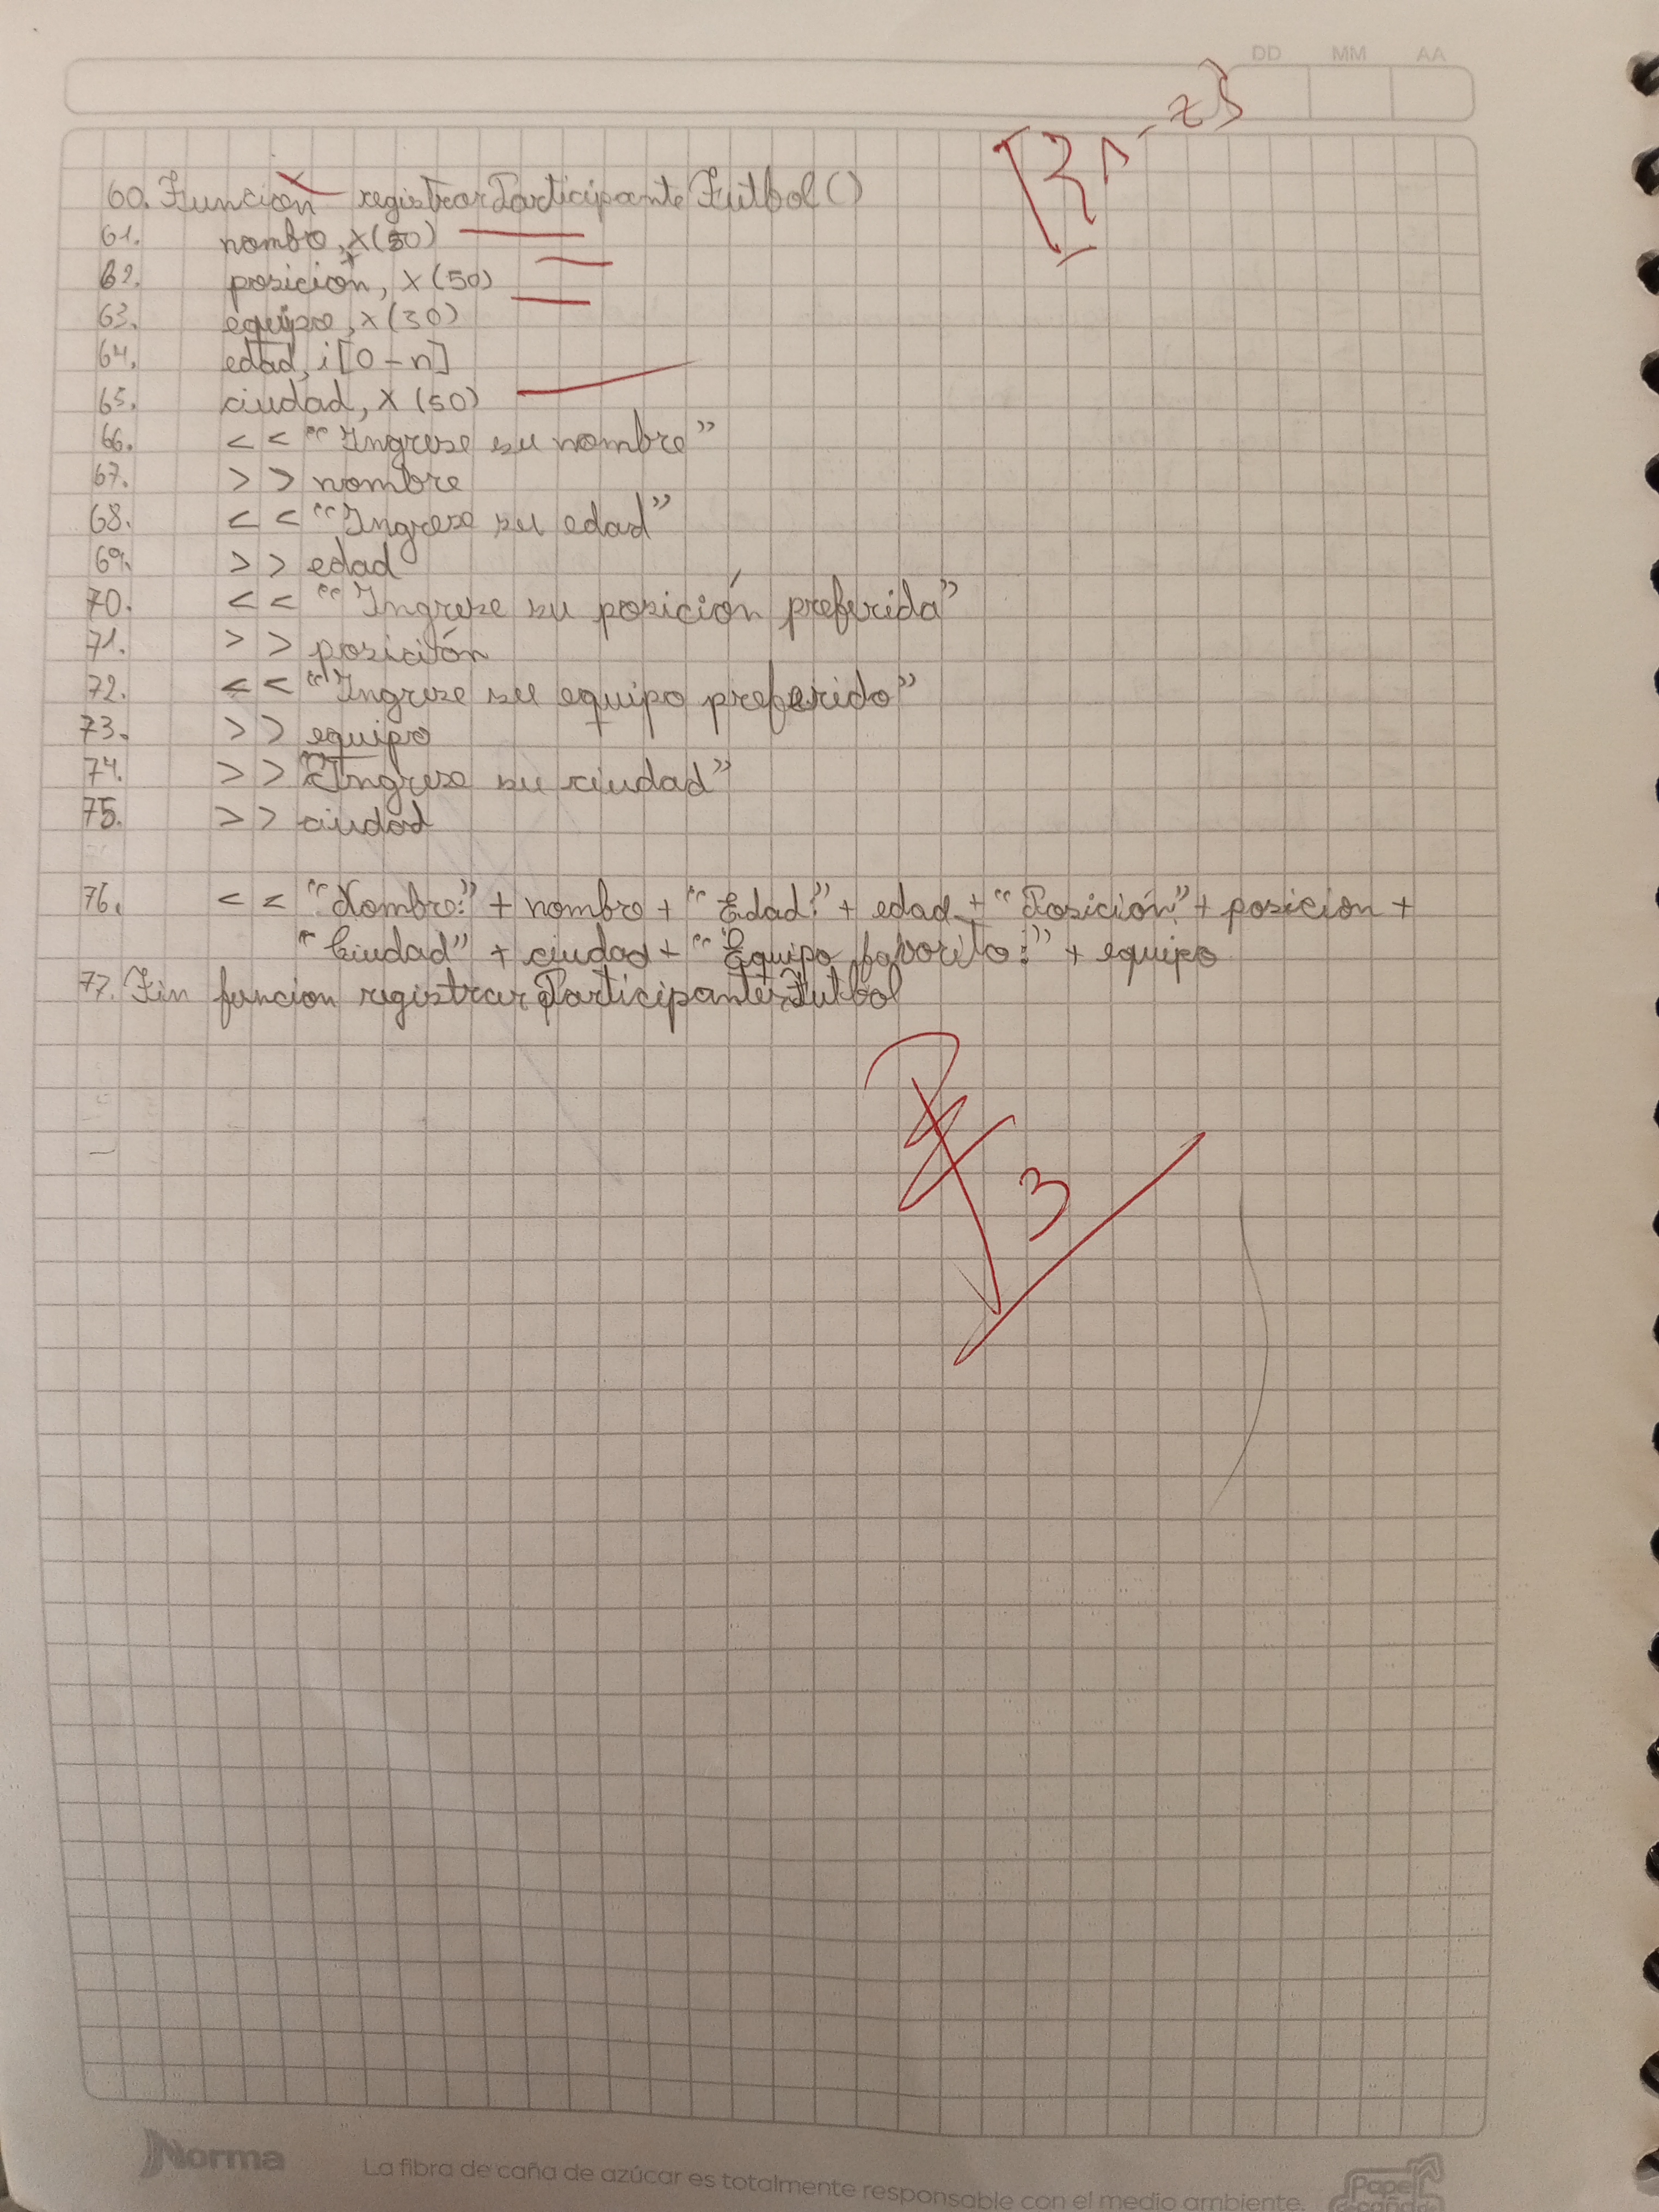 DD MM AA
60. Funcion registrarParticipanteFutbol()
61. nombre, X(50)
62. posición, X(50)
63. equipo, X(30)
64. edad, i[0-n]
65. ciudad, X(50)
66. << "Ingrese su nombre"
67. >> nombre
68. << "Ingrese su edad"
69. >> edad
70. << "Ingrese su posición preferida"
71. >> posición
72. << "Ingrese su equipo preferido"
73. >> equipo
74. >> "Ingrese su ciudad"
75. >> ciudad
76. << "Nombre:" + nombre + "Edad:" + edad + "Posición:" + posicion +
"Ciudad" + ciudad + "Equipo favorito:" + equipo
77. Fin funcion registrarParticipanteFutbol
3
Norma
La fibra de caña de azúcar es totalmente responsable con el medio ambiente.
Papel